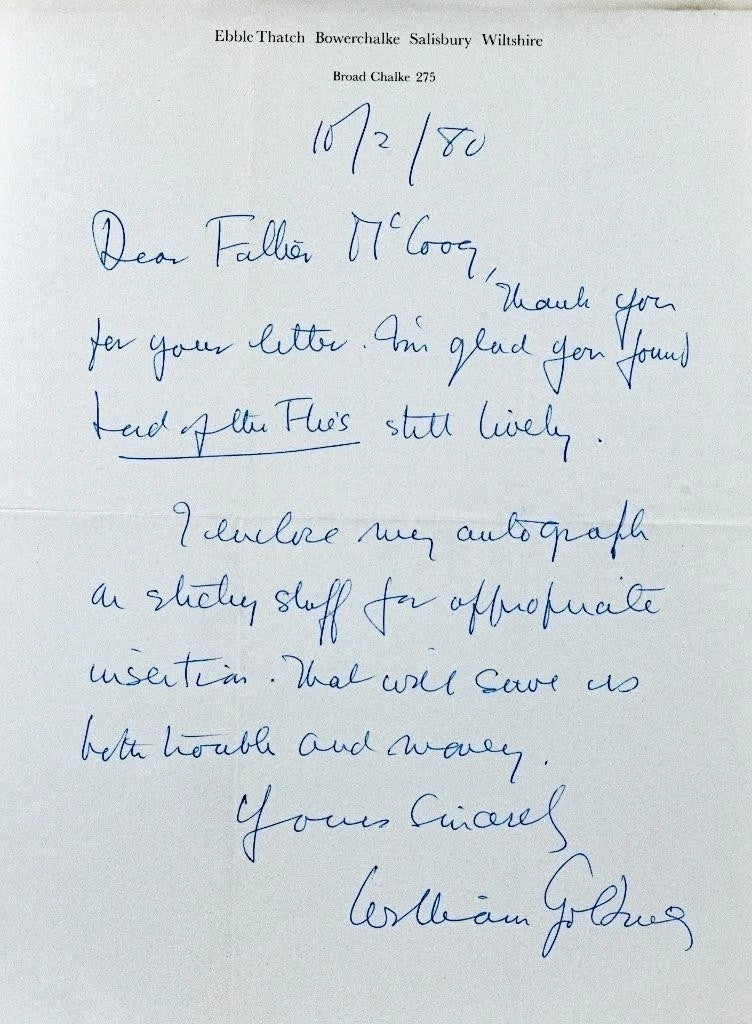 Ebble Thatch Bowerchalke Salisbury Wiltshire
Broad Chalke 275
10/2/80
Dear Father McCoog,
Thank you
for your letter. I'm glad you found
Lord of the Flies still lively.
I enclose my autograph
on sticky stuff for appropriate
insertion. That will save us
both trouble and money.
Yours Sincerely
William Golding